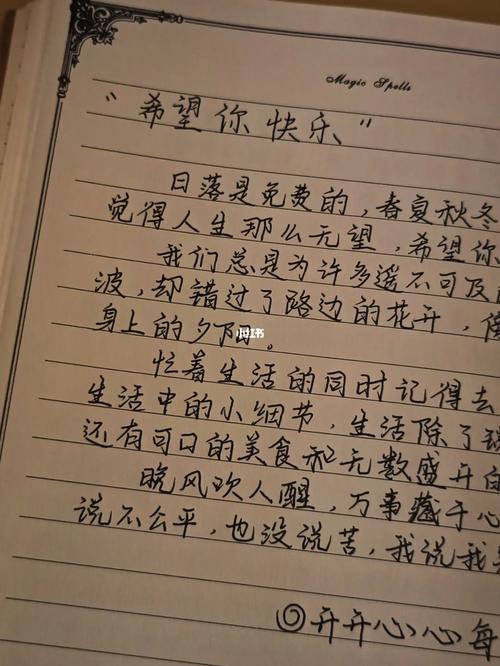 Magic Spells
“希望你快乐”
日落是免费的，春夏秋冬
觉得人生那么无望，希望你
我们总是为许多遥不可及
波，却错过了路边的花开，
身上的夕阳。
小红书
忙着生活的同时记得去
生活中的小细节，生活除了
还有可口的美食和无数盛开
晚风吹人醒，万事藏于心
说不公平，也没说苦，我说我
开开心心每